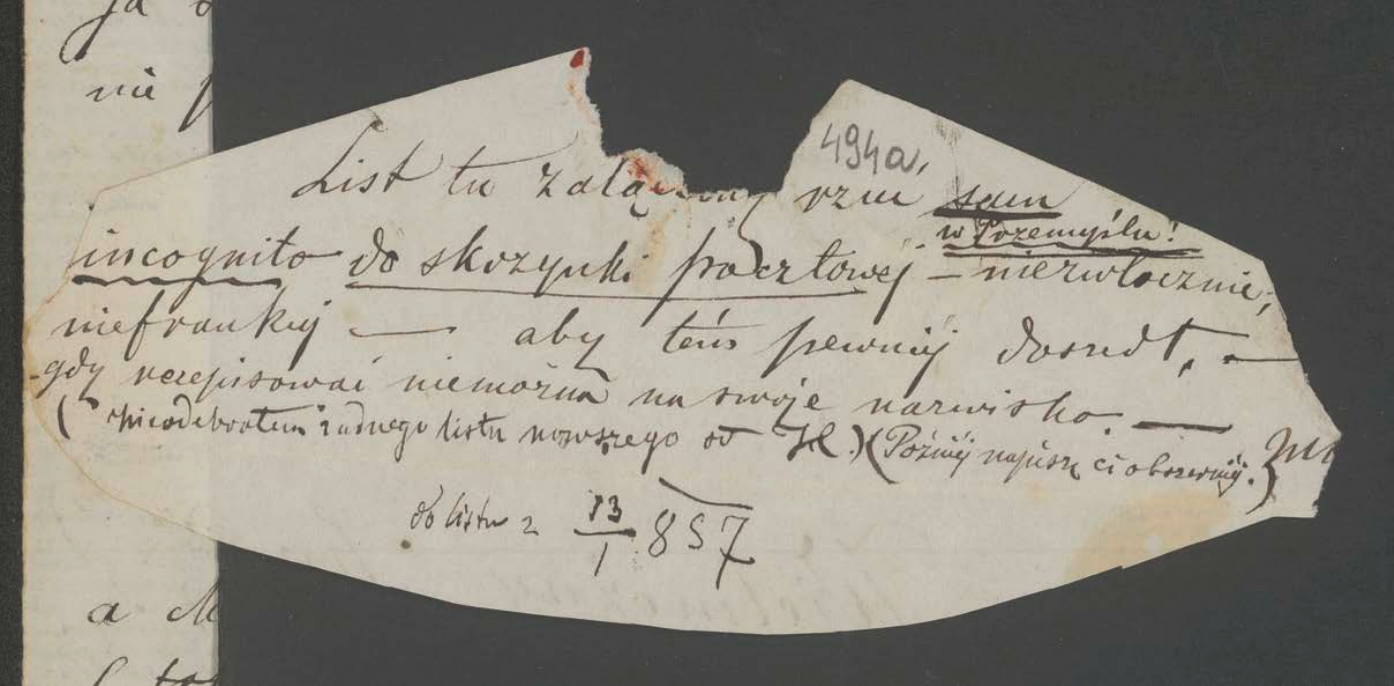 ja
nie
494a.
List tu załączony rzuć sam
w Przemyślu!
incognito do skrzynki pocztowej – niezwłocznie,
niefrankuj — aby tém pewniéj doszedł, —
gdy recepisować niemożna na swoje nazwisko. —
(Nieodebrałem żadnego listu nowszego od H.) (Poźniéj napiszę ci obszerniéj.)
do listu z 13/1 857
a